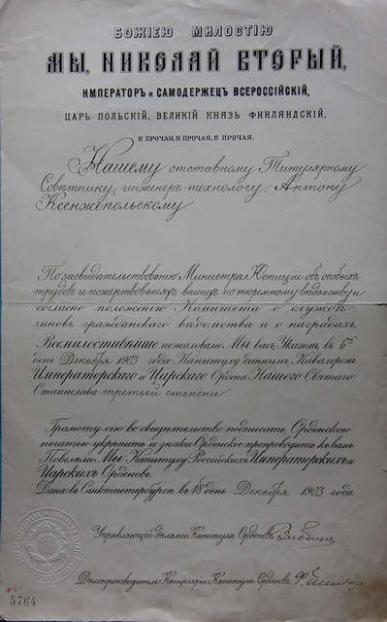 БОЖІЕЮ МИЛОСТІЮ
МЫ, НИКОЛАЙ ВТОРЫЙ,
ИМПЕРАТОРЪ и САМОДЕРЖЕЦЪ ВСЕРОССІЙСКІЙ,
ЦАРЬ ПОЛЬСКІЙ, ВЕЛИКІЙ КНЯЗЬ ФИНЛЯНДСКІЙ,
И ПРОЧАЯ, И ПРОЧАЯ, И ПРОЧАЯ.
Нашему отставному Титулярному
Совѣтнику, инженеръ-технологу, Антону
Ксенжепольскому
По засвидѣтельствованію Министра Юстиціи объ особыхъ
трудахъ и пожертвованіяхъ вашихъ по тюремному вѣдомству и
согласно положенію Комитета о службѣ
чиновъ гражданскаго вѣдомства и о наградахъ,
Всемилостивѣйше пожаловали Мы васъ Указомъ, въ 6
день Декабря 1903 года Капитулу даннымъ, Кавалеромъ
Императорскаго и Царскаго Ордена Нашего Святаго
Станислава третьей степени
Грамоту сію во свидѣтельство подписать, Орденскою
печатью укрѣпить и знаки Орденскіе препроводить къ вамъ
Повелѣли Мы Капитулу Россійскихъ Императорскихъ и
Царскихъ Орденовъ.
Дана въ Санктпетербургѣ въ 18 день Декабря 1903 года
Управляющій дѣлами Капитула Орденовъ
Дѣлопроизводитель Канцеляріи Капитула Орденовъ
5764